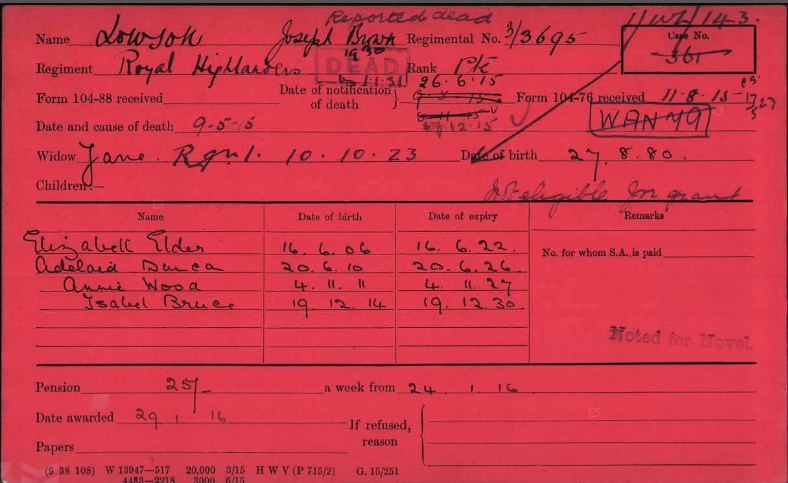 Reported dead 1/W/143.
Name Lowson Joseph Brown Regimental No. 3/3695 Case No. 361
Regiment Royal Highlanders DEAD Rank Pte
Form 104-88 received Date of notification of death } 26.6.15 Form 104-76 received 11-8-15
17.12.15
Date and cause of death 9-5-15 WAN 49
Widow Jane. 10.10.23 Date of birth 27.8.80.
Children:— Not eligible for grant
Name Date of birth Date of expiry Remarks
Elizabeth Elder 16.6.06 16.6.22. No. for whom S.A. is paid
Adelaid Duncan 20.6.10 20.6.26.
Annie Wood 4.11.11 4.11.27
Isabel Bruce 19.12.14 19.12.30.
Noted for Novel.
Pension 25/- a week from 24.1.16
Date awarded 29.1.16 If refused, reason {
Papers
(9 38 108) W 13947—517 20,000 3/15 H W V (P 715/2) G. 15/251
4483—2218 3000 6/15